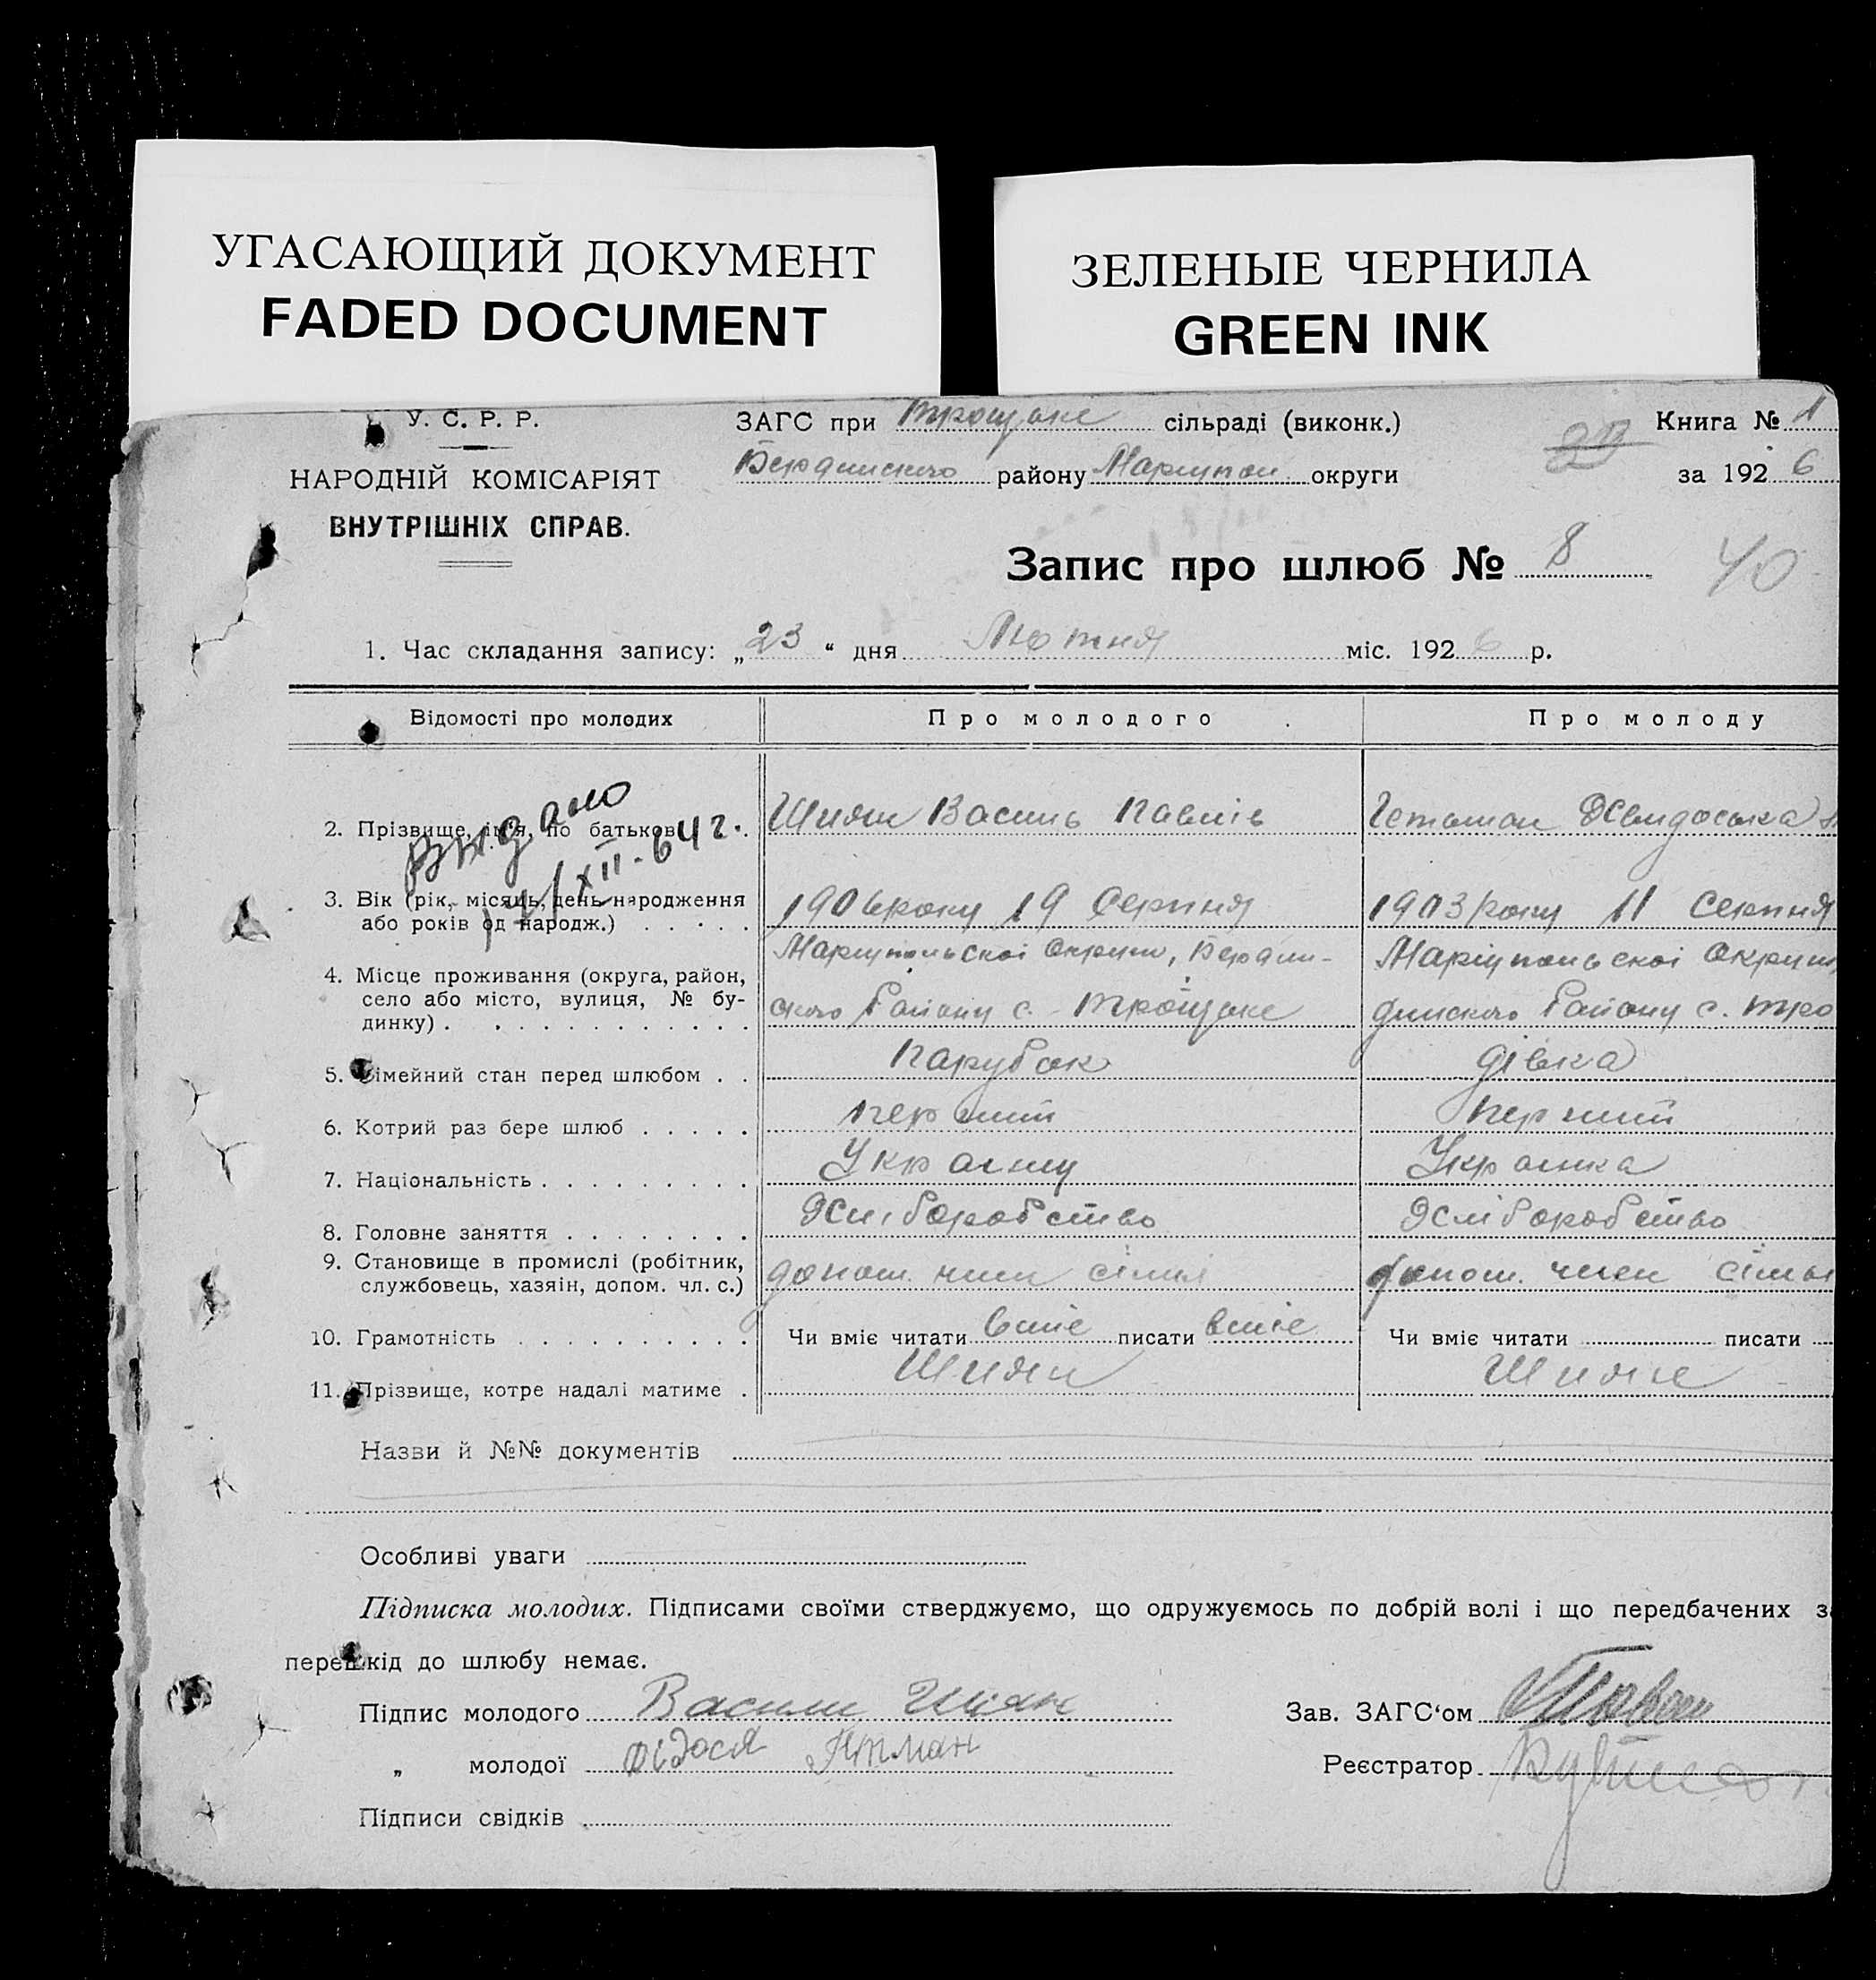 УГАСАЮЩИЙ ДОКУМЕНТ
FADED DOCUMENT
ЗЕЛЕНЫЕ ЧЕРНИЛА
GREEN INK
У. С. Р. Р.
НАРОДНІЙ КОМІСАРІЯТ
ВНУТРІШНІХ СПРАВ.
ЗАГС при Троцьке сільраді (виконк.)
району Маріупол округи
Книга № 1
за 1926
Запис про шлюб № 8
40
1. Час складання запису: „23“ дня Лютня міс. 1926 р.
Відомості про молодих
Про молодого
Про молоду
видано
XII-64 г.
2. Прізвище, ім'я, по батьков
Шиян Василь Павлів
Гетьман
3. Вік (рік, місяць, день народження
або років од народж.)
1906 року 19 Серпня
1903 року 11 Серпня
4. Місце проживання (округа, район,
село або місто, вулиця, № бу-
динку)
Маріупольскоі Округи,
ского Району с.
Маріупольскоі Округи,
динского Району с. Тро
5. Сімейний стан перед шлюбом
Парубок
дівка
6. Котрий раз бере шлюб
перший
перший
7. Національність
Украинка
8. Головне заняття
Хліборобство
Хліборобство
9. Становище в промислі (робітник,
службовець, хазяін, допом. чл. с.)
допом. член сімьі
допом. член сімьі
10. Грамотність
Чи вміє читати вміє писати вміє
Чи вміє читати писати
11. Прізвище, котре надалі матиме
Шиян
Шиян
Назви й №№ документів
Особливі уваги
Підписка молодих. Підписами своїми стверджуємо, що одружуємось по добрій волі і що передбачених
перешкід до шлюбу немає.
Підпис молодого Васили Шиян
„ молодої Фідося Гітман
Підписи свідків
Зав. ЗАГС‘ом
Реєстратор